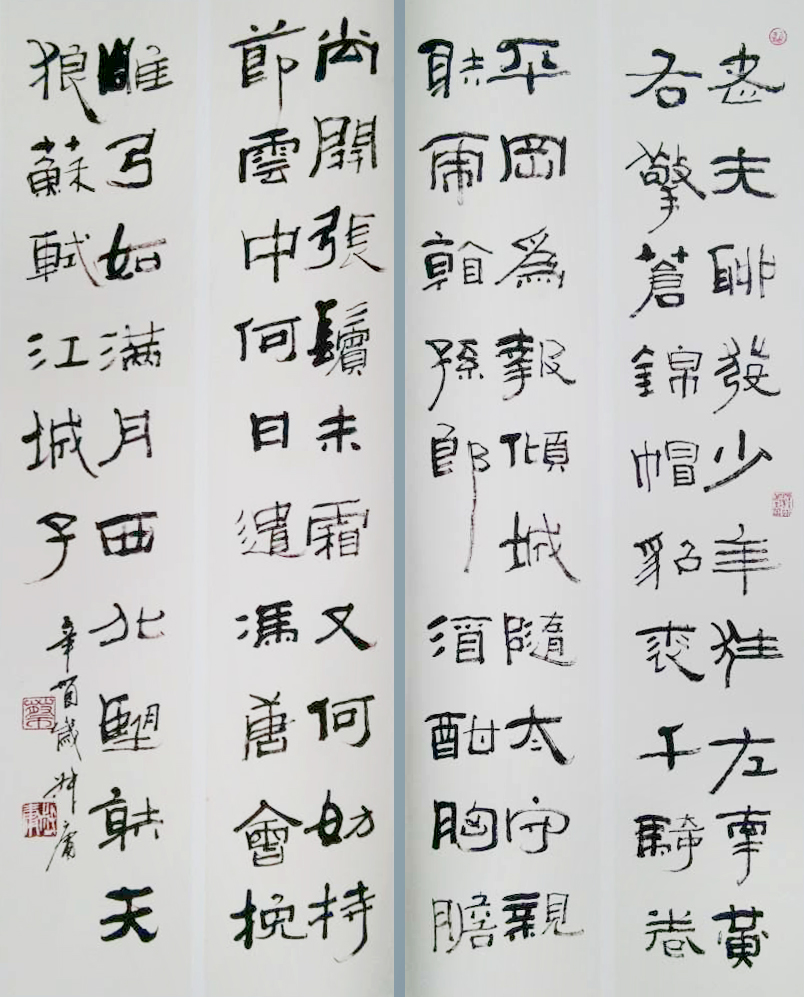 老夫聊發少年狂左牽黃
右擎蒼錦帽貂裘千騎卷
平岡爲報傾城隨太守親
射虎看孫郎酒酣胸膽
尚開張鬢未霜又何妨持
節雲中何日遣馮唐會挽
雕弓如滿月西北望射天
狼蘇軾江城子
辛酉歲庸